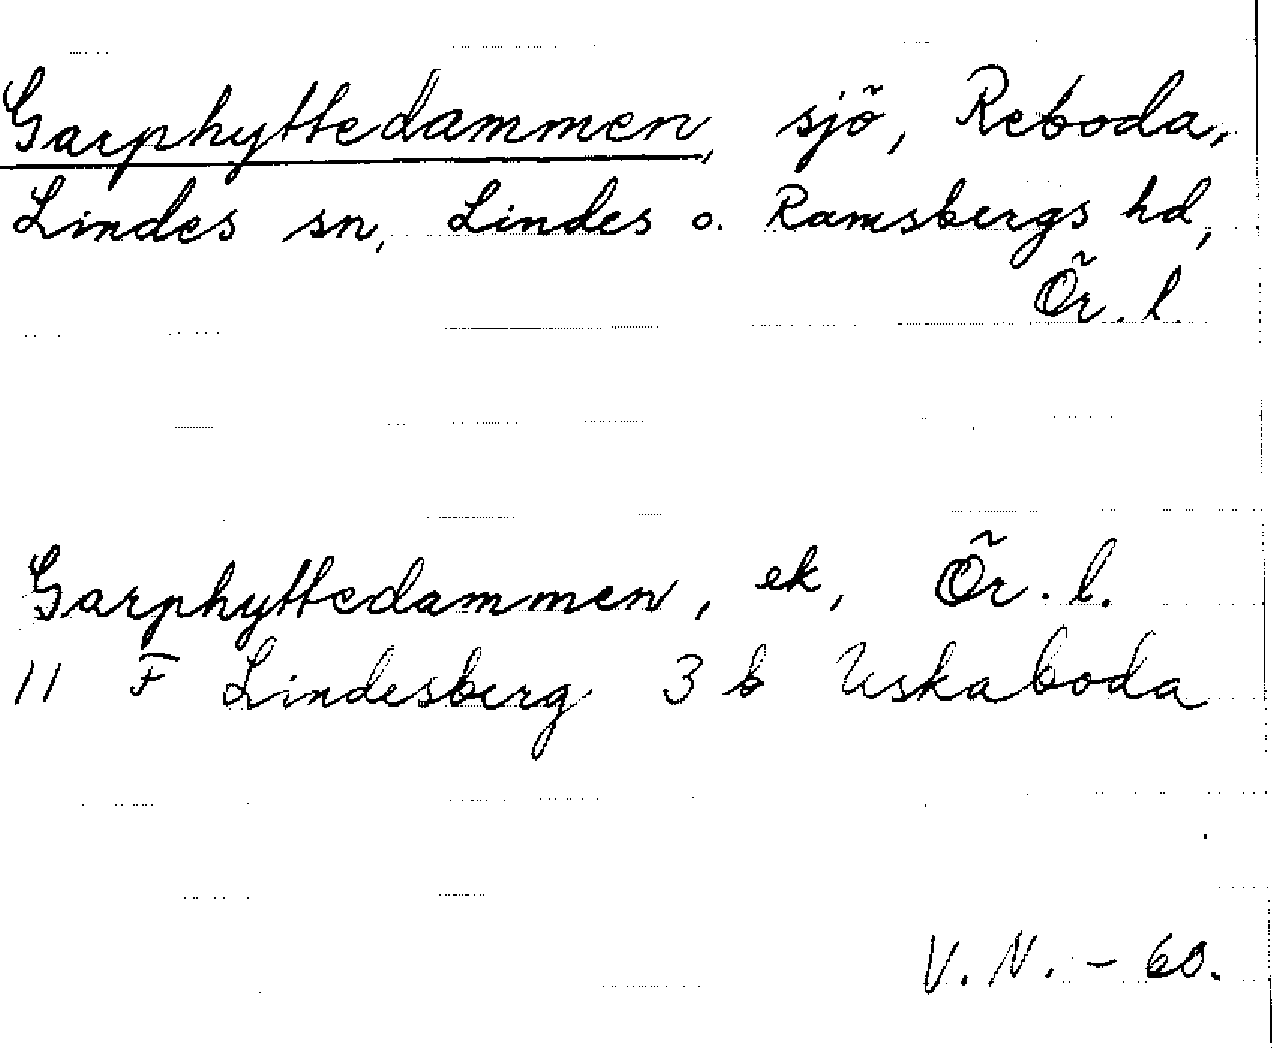 Garphyttedammen, sjö, Reboda,
Lindes sn, Lindes o. Ramsbergs hd,
Ör. l.
Garphyttedammen, ek, Ör. l.
11 F Lindesberg 3 b Uskaboda
V. N. - 60.